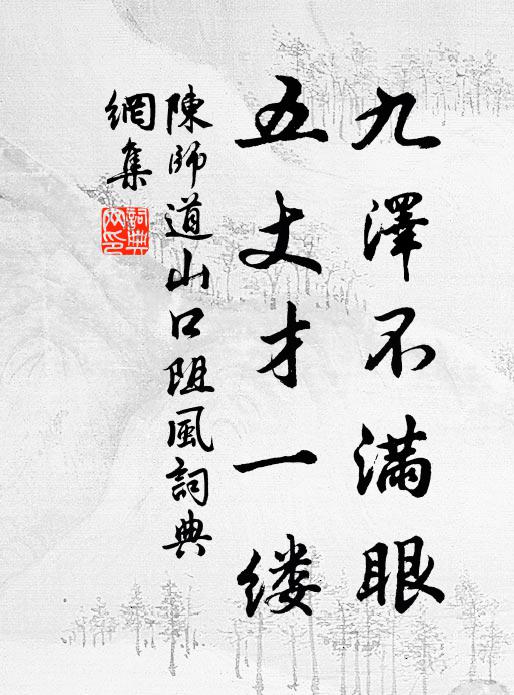 九澤不滿眼
五丈才一缕
陳師道山口阻風詞典
網集
詞典
网印